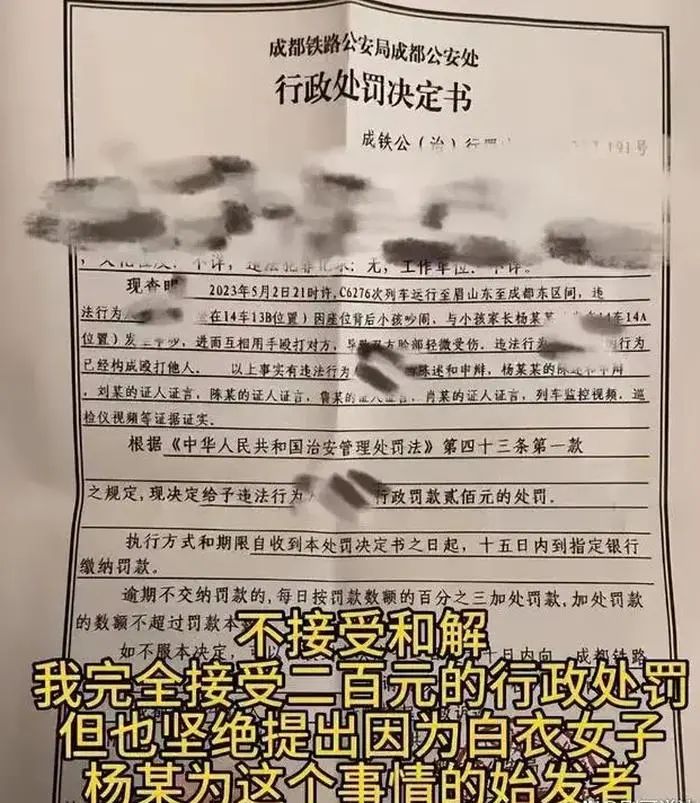 成都铁路公安局成都公安处
行政处罚决定书
成铁公（治）行罚
191号
不详，违法犯罪记录：无，工作单位：不详。
现查明 2023年5月2日21时许，C6276次列车运行至眉山东至成都东区间，违
法行为 在14车13B位置）因座位背后小孩吵闹，与小孩家长杨某某 14车14A
位置）发生争吵，进而互相用手殴打对方，导致双方脸部轻微受伤。违法行为 的行为
已经构成殴打他人。 以上事实有违法行为 陈述和申辩，杨某某的陈述和申辩
，刘某的证人证言，陈某的证人证言， 某的证人证言，肖某的证人证言，列车监控视频，巡
检仪视频等证据证实。
根据《中华人民共和国治安管理处罚法》第四十三条第一款
之规定，现决定给予违法行为 行政罚款贰佰元的处罚.
执行方式和期限自收到本处罚决定书之日起，十五日内到指定银行
缴纳罚款。
逾期不交纳罚款的，每日按罚款数额的百分之三加处罚款，加处罚款
的数额不超过罚款本
如不服本决定，可以 十日内向 成都铁路
不接受和解
我完全接受二百元的行政处罚
但也坚绝提出因为白衣女子
杨某为这个事情的始发者